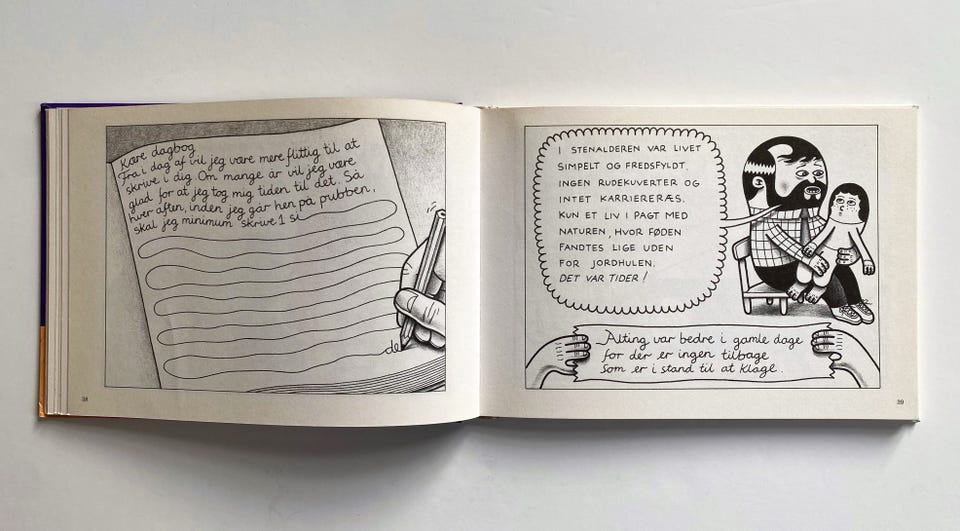 Kære dagbog
Fra i dag af vil jeg være mere flittig til at
skrive i dig. Om mange år vil jeg være
glad for at jeg tog mig tiden til det. Så
hver aften, inden jeg går hen på pubben,
skal jeg minimum skrive 1 si
de
38
I STENALDEREN VAR LIVET
SIMPELT OG FREDSFYLDT.
INGEN RUDEKUVERTER OG
INTET KARRIERERÆS.
KUN ET LIV I PAGT MED
NATUREN, HVOR FØDEN
FANDTES LIGE UDEN
FOR JORDHULEN.
DET VAR TIDER!
Alting var bedre i gamle dage
for der er ingen tilbage
som er i stand til at klage.
39